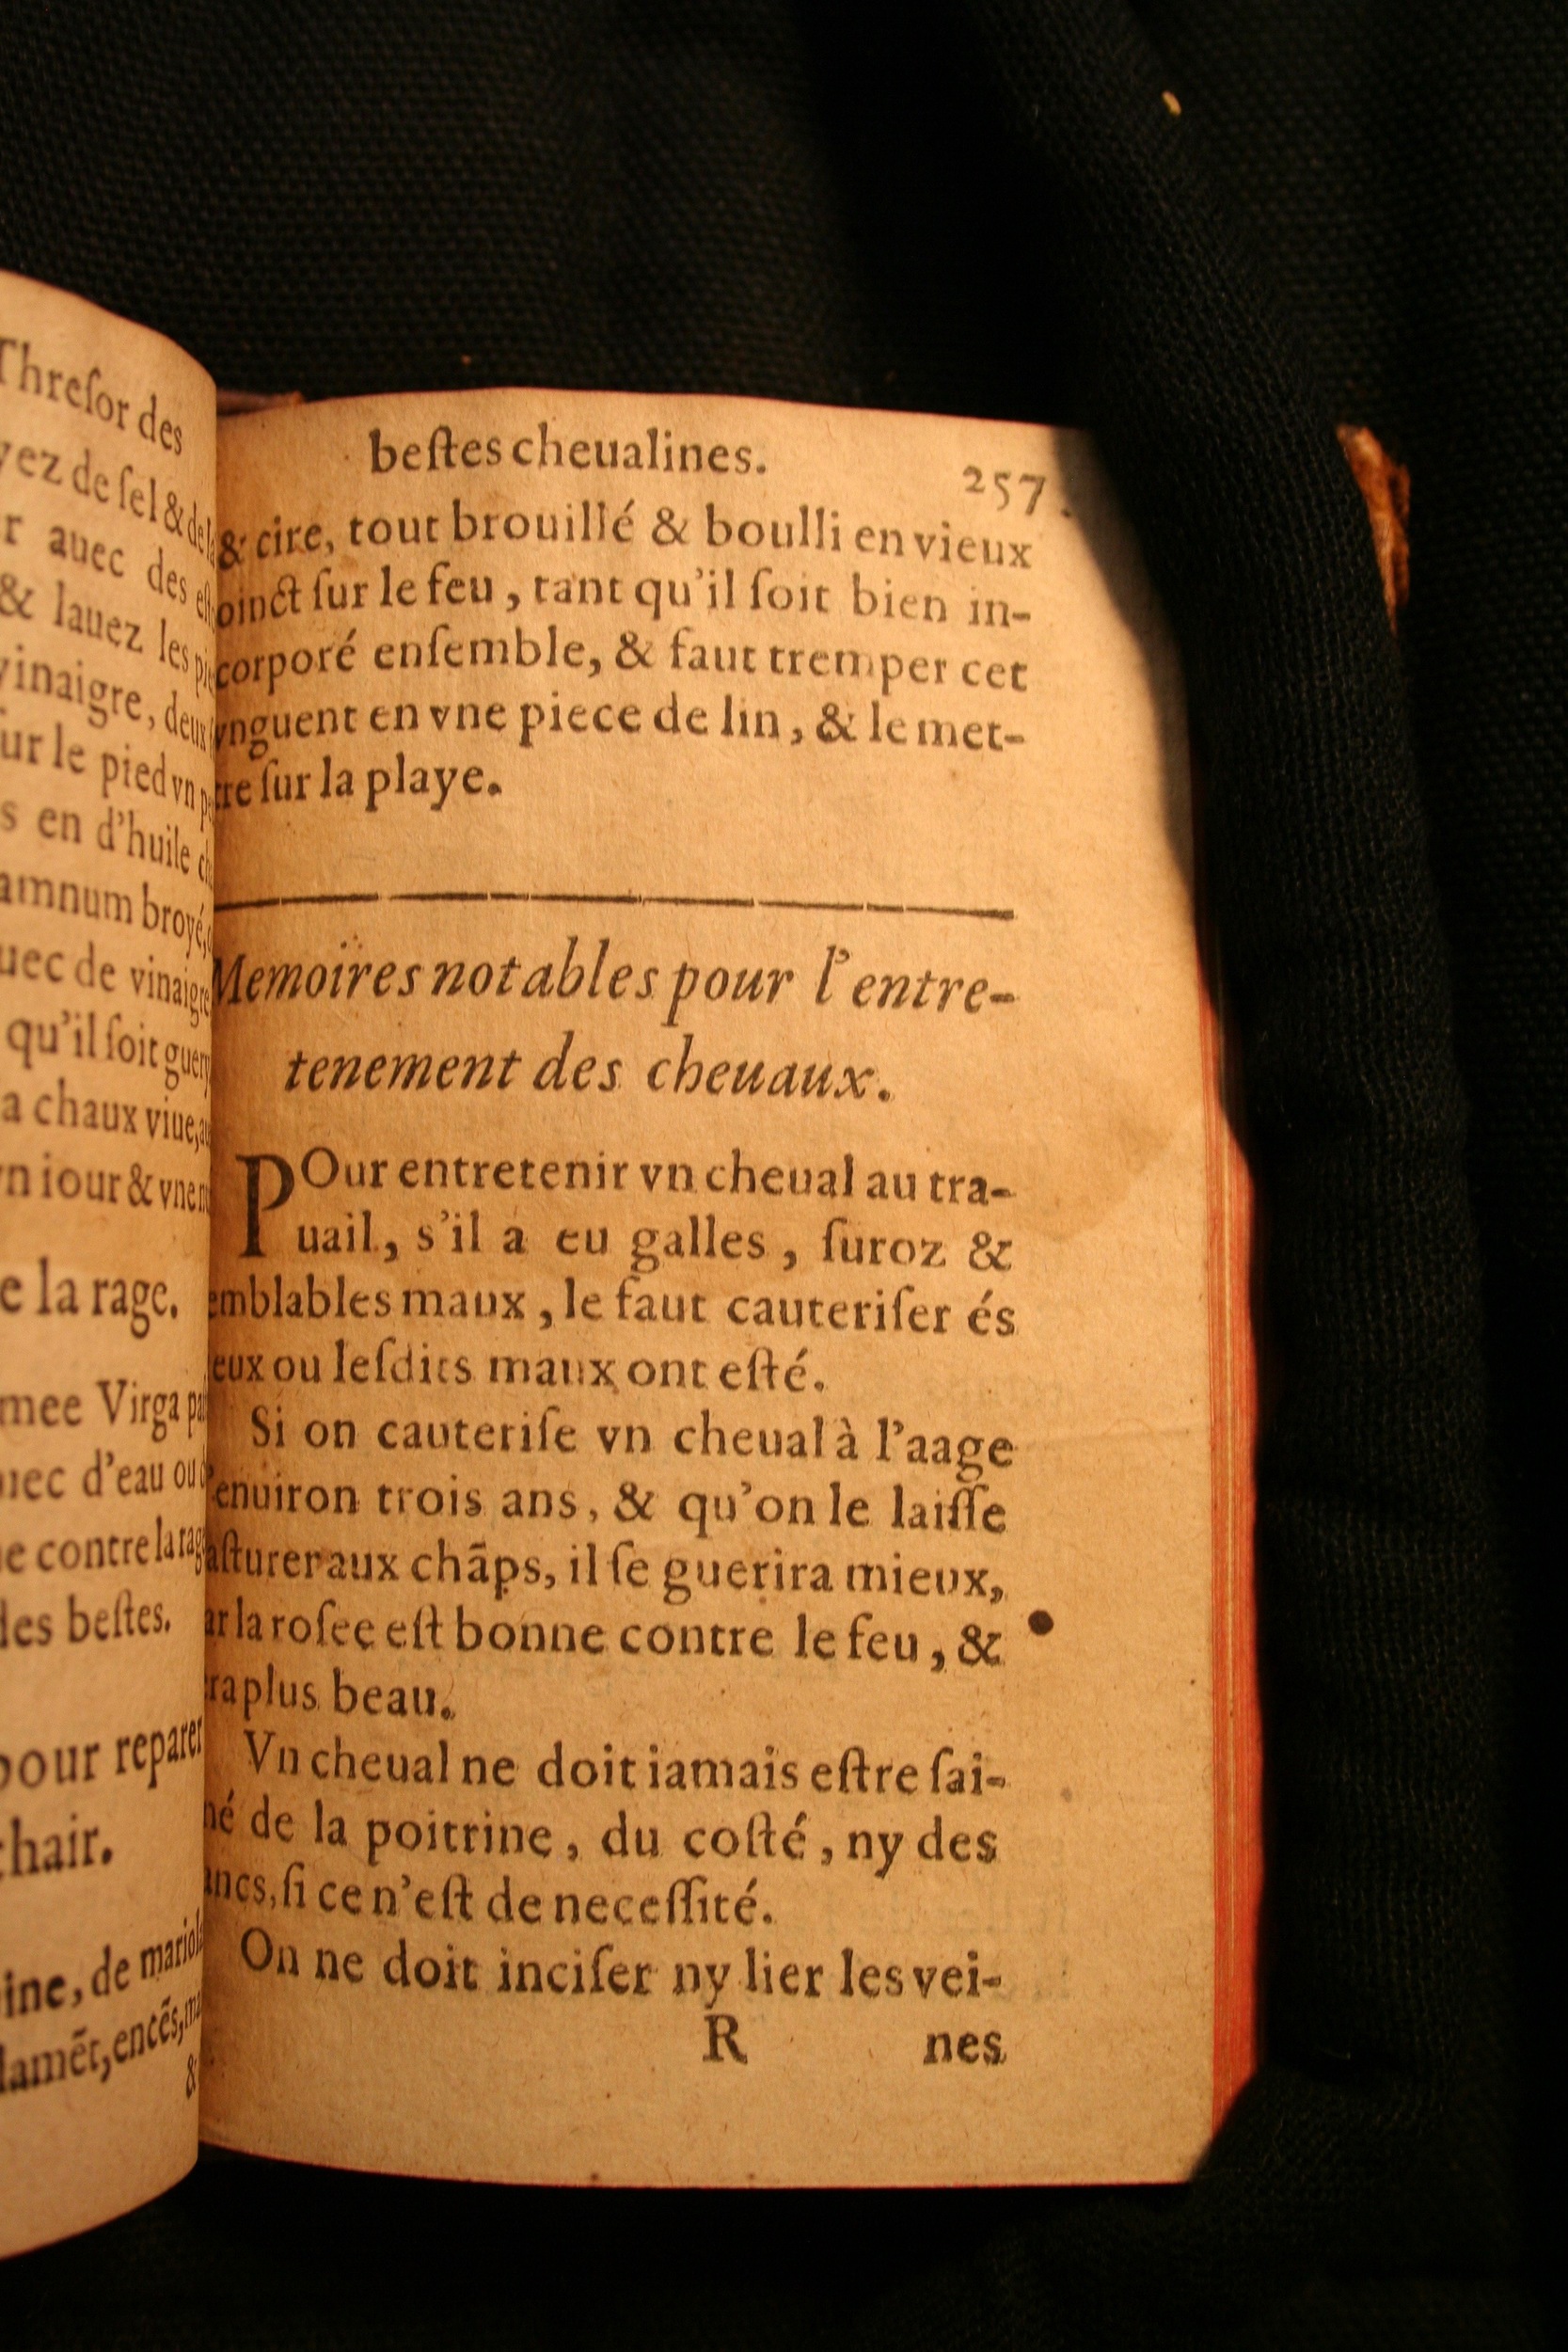 Thresor des
yez de ſel & de la
r auec des eſ
& lauez les pie
vinaigre, deux
ſur le pied vn
s en d'huile
amnum broyé,
uec de vinaigre
qu'il ſoit guery
a chaux viue,
vn iour & vne
e la rage.
mee Virga
uec d'eau ou
e contre la rage
des beſtes.
pour reparer
chair.
ine, de mariol
lamēt, encēs,
&
beſtes cheualines. 257.
& cire, tout brouillé & boulli en vieux
oinct ſur le feu, tant qu'il ſoit bien in-
corporé enſemble, & faut tremper cet
vnguent en vne piece de lin, & le met-
tre ſur la playe.
Memoires notables pour l'entre-
tenement des cheuaux.
POur entretenir vn cheual au tra-
uail, s'il a eu galles, ſuroz &
emblables maux, le faut cauteriſer és
eux ou leſdits maux ont eſté.
Si on cauteriſe vn cheual à l'aage
d'enuiron trois ans, & qu'on le laiſſe
aſturer aux chãps, il ſe guerira mieux,
ar la roſee eſt bonne contre le feu, &
ra plus beau.
Vn cheual ne doit iamais eſtre ſai-
né de la poitrine, du coſté, ny des
ancs, ſi ce n'eſt de neceſſité.
On ne doit inciſer ny lier les vei-
R nes